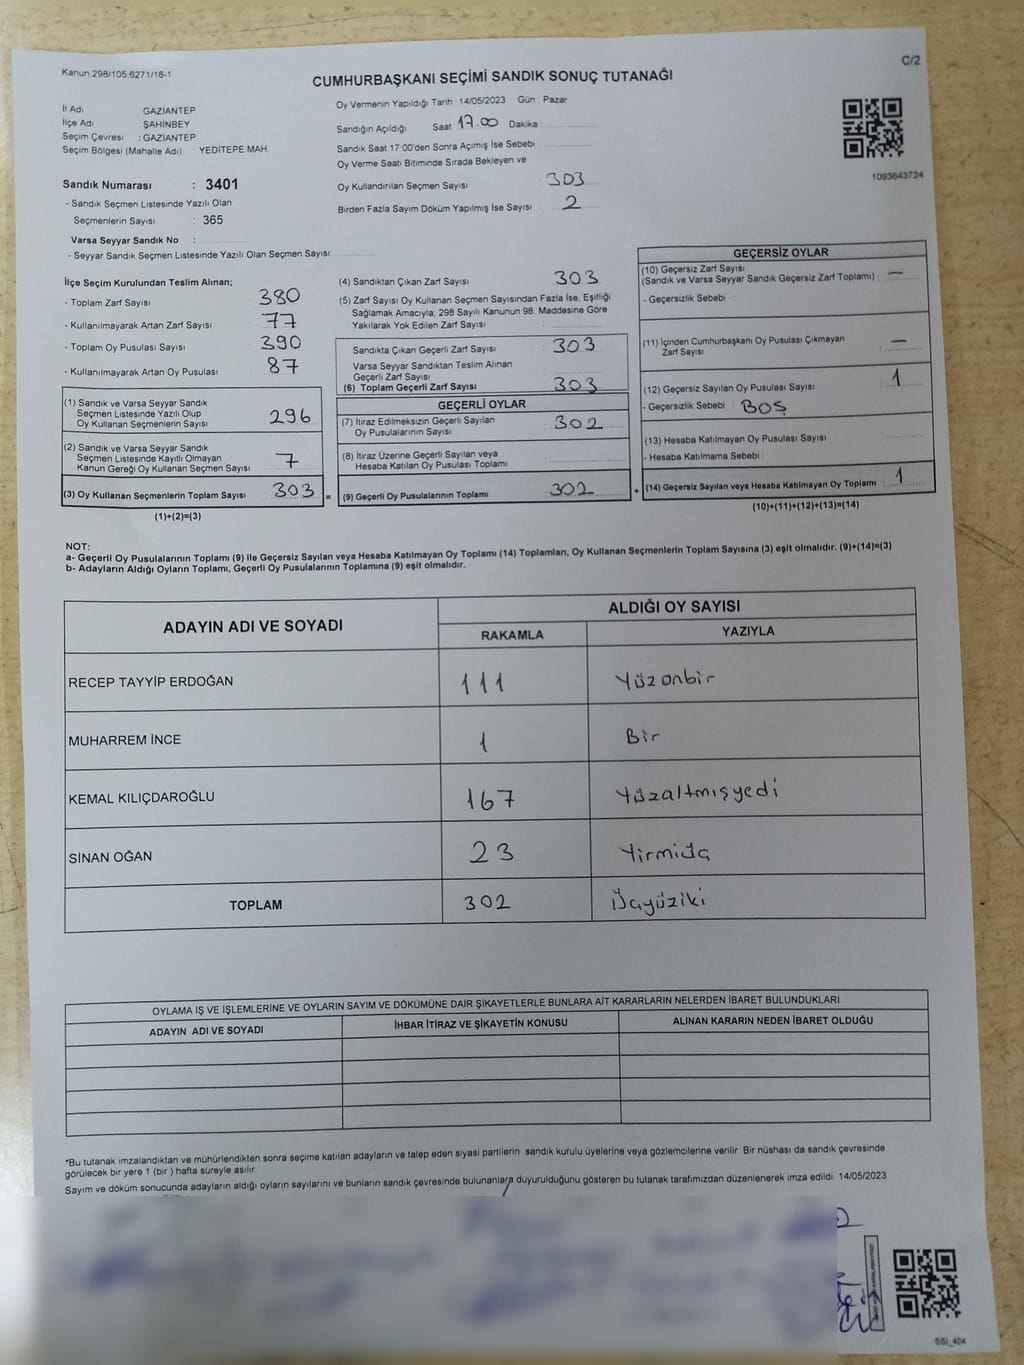 Kanun.298/105.6271/18-1
C/2
CUMHURBAŞKANI SEÇİMİ SANDIK SONUÇ TUTANAĞI
İl Adı : GAZİANTEP
İlçe Adı : ŞAHİNBEY
Seçim Çevresi : GAZİANTEP
Seçim Bölgesi (Mahalle Adı) YEDİTEPE MAH.
Oy Vermenin Yapıldığı Tarih :14/05/2023 Gün : Pazar
Sandığın Açıldığı Saat 17.00 Dakika :
Sandık Saat 17:00'den Sonra Açımış İse Sebebi
Oy Verme Saati Bitiminde Sırada Bekleyen ve
Oy Kullandırılan Seçmen Sayısı : 303
Birden Fazla Sayım Döküm Yapılmış İse Sayısı : 2
1093643724
Sandık Numarası : 3401
- Sandık Seçmen Listesinde Yazılı Olan
Seçmenlerin Sayısı : 365
Varsa Seyyar Sandık No :
- Seyyar Sandık Seçmen Listesinde Yazılı Olan Seçmen Sayısı:
İlçe Seçim Kurulundan Teslim Alınan;
- Toplam Zarf Sayısı 380
- Kullanılmayarak Artan Zarf Sayısı 77
- Toplam Oy Pusulası Sayısı 390
- Kullanılmayarak Artan Oy Pusulası 87
(1) Sandık ve Varsa Seyyar Sandık
Seçmen Listesinde Yazılı Olup
Oy Kullanan Seçmenlerin Sayısı 296
(2) Sandık ve Varsa Seyyar Sandık
Seçmen Listesinde Kayıtlı Olmayan
Kanun Gereği Oy Kullanan Seçmen Sayısı 7
(3) Oy Kullanan Seçmenlerin Toplam Sayısı 303 =
(1)+(2)=(3)
(4) Sandıktan Çıkan Zarf Sayısı 303
(5) Zarf Sayısı Oy Kullanan Seçmen Sayısından Fazla İse, Eşitliği
Sağlamak Amacıyla; 298 Sayılı Kanunun 98. Maddesine Göre
Yakılarak Yok Edilen Zarf Sayısı :
Sandıkta Çıkan Geçerli Zarf Sayısı 303
Varsa Seyyar Sandıktan Teslim Alınan
Geçerli Zarf Sayısı
(6) Toplam Geçerli Zarf Sayısı 303
GEÇERLİ OYLAR
(7) İtiraz Edilmeksizin Geçerli Sayılan
Oy Pusulalarının Sayısı 302
(8) İtiraz Üzerine Geçerli Sayılan veya
Hesaba Katılan Oy Pusulası Toplamı
(9) Geçerli Oy Pusulalarının Toplamı 302 +
GEÇERSİZ OYLAR
(10) Geçersiz Zarf Sayısı
(Sandık ve Varsa Seyyar Sandık Geçersiz Zarf Toplamı) : —
- Geçersizlik Sebebi :
(11) İçinden Cumhurbaşkanı Oy Pusulası Çıkmayan
Zarf Sayısı : —
(12) Geçersiz Sayılan Oy Pusulası Sayısı 1
- Geçersizlik Sebebi : BOŞ
(13) Hesaba Katılmayan Oy Pusulası Sayısı :
- Hesaba Katılmama Sebebi :
(14) Geçersiz Sayılan veya Hesaba Katılmayan Oy Toplamı : 1
(10)+(11)+(12)+(13)=(14)
NOT:
a- Geçerli Oy Pusulalarının Toplamı (9) ile Geçersiz Sayılan veya Hesaba Katılmayan Oy Toplamı (14) Toplamları, Oy Kullanan Seçmenlerin Toplam Sayısına (3) eşit olmalıdır. (9)+(14)=(3)
b- Adayların Aldığı Oyların Toplamı, Geçerli Oy Pusulalarının Toplamına (9) eşit olmalıdır.
ADAYIN ADI VE SOYADI
ALDIĞI OY SAYISI
RAKAMLA YAZIYLA
RECEP TAYYİP ERDOĞAN 111 Yüzonbir
MUHARREM İNCE 1 Bir
KEMAL KILIÇDAROĞLU 167 Yüzaltmışyedi
SİNAN OĞAN 23 Yirmiüç
TOPLAM 302 Üçyüziki
OYLAMA İŞ VE İŞLEMLERİNE VE OYLARIN SAYIM VE DÖKÜMÜNE DAİR ŞİKAYETLERLE BUNLARA AİT KARARLARIN NELERDEN İBARET BULUNDUKLARI
ADAYIN ADI VE SOYADI İHBAR İTİRAZ VE ŞİKAYETİN KONUSU ALINAN KARARIN NEDEN İBARET OLDUĞU
*Bu tutanak imzalandıktan ve mühürlendikten sonra seçime katılan adayların ve talep eden siyasi partilerin sandık kurulu üyelerine veya gözlemcilerine verilir. Bir nüshası da sandık çevresinde
görülecek bir yere 1 (bir ) hafta süreyle asılır.
Sayım ve döküm sonucunda adayların aldığı oyların sayılarını ve bunların sandık çevresinde bulunanlara duyurulduğunu gösteren bu tutanak tarafımızdan düzenlenerek imza edildi. 14/05/2023
SSI_404